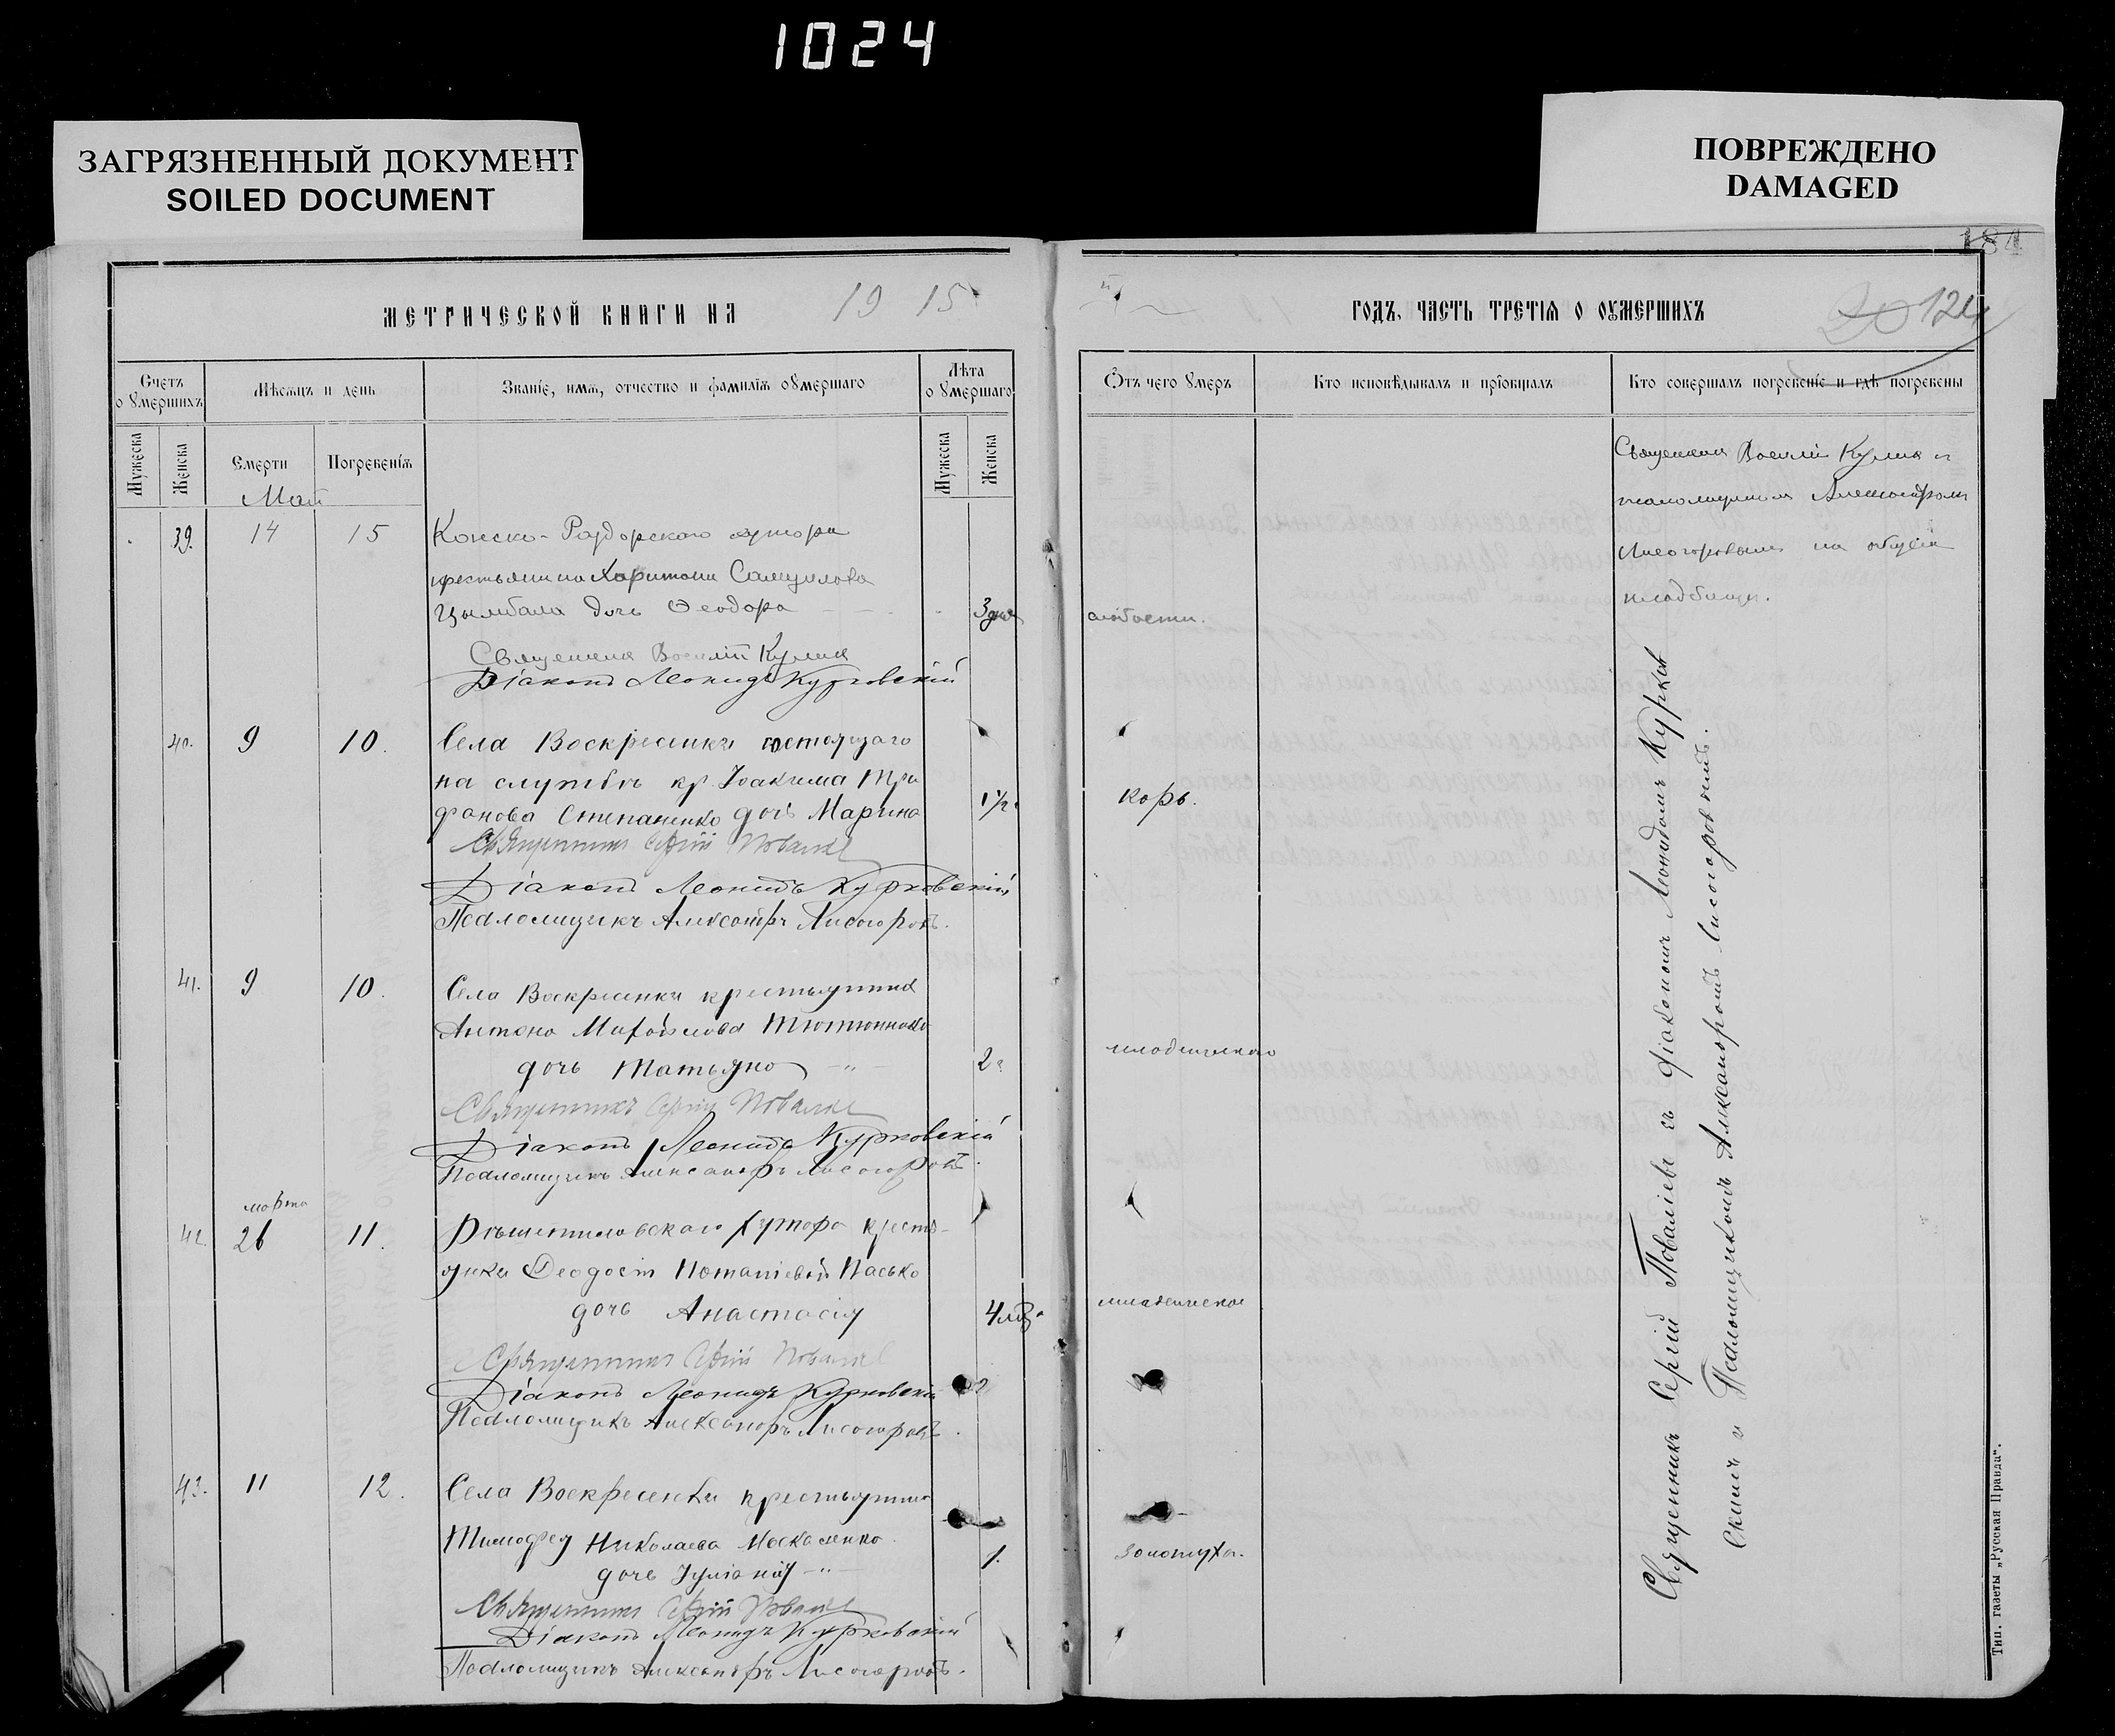 1024
ЗАГРЯЗНЕННЫЙ ДОКУМЕНТ
SOILED DOCUMENT
ПОВРЕЖДЕНО
DAMAGED
184
МЕТРИЧЕСКОЙ КНИГИ НА 1915
ГОДЪ, ЧАСТЬ ТРЕТІЯ О ОУМЕРШИХЪ
20 124
Счетъ о умершихъ
Мѣсяцъ и день
Званіе, имя, отчество и фамилія умершаго
Лѣта о умершаго
Отъ чего умеръ
Кто исповѣдывалъ и пріобщалъ
Кто совершалъ погребеніе и гдѣ погребены
Мужеска
Женска
Смерти
Погребенія
Мужеска
Женска
Май
39. 14 15 Конско-Раздорского хутора
крестьянина Харитона Самуилова
Цымбала дочь Феодора 3 дня
слабости.
Священник Василий Кулик и
псаломщиком Александром
Лисогоровым на общем
кладбище.
Священник Василій Кулик
Діаконъ Леонидъ Курковскій
40. 9 10. Села Воскресенки состоящаго
на службѣ кр Іоакима Три
фонова Степаненко дочь Марина 1 1/2
корь.
Священникъ Сергій Повалiевъ
Діаконъ Леонидъ Курковскій
Псаломщикъ Александръ Лисогоровъ.
41. 9 10. Села Воскресенки крестьянина
Антона Михайлова Тютюнника
дочь Татьяна 2
младенческаго
Священникъ Сергій Повалiевъ
Діаконъ Леонидъ Курковскій
Псаломщикъ Александръ Лисогоровъ.
марта
42. 26 11. Рѣшетиловскаго хутора кресть-
янки Феодосіи Потапіевой Пасько
дочь Анастасія 4 мѣ.
младенческое
Священникъ Сергій Повалiевъ
Діаконъ Леонидъ Курковскій
Псаломщикъ Александръ Лисогоровъ.
43. 11 12. Села Воскресенки крестьянина
Тимофея Николаева Москаленко
дочь Іуліанія 1.
золотуха.
Священникъ Сергій Повалiевъ
Діаконъ Леонидъ Курковскій
Псаломщикъ Александръ Лисогоровъ.
Священникъ Сергій Поваліевъ съ діакономъ Леонидомъ Курков
скимъ и Псаломщикомъ Александромъ Лисогоровымъ.
Тип. газеты „Русская Правда“.